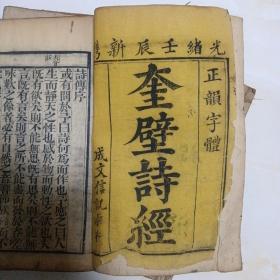 光緒壬辰新
正韻字體
奎壁詩經
成文信記
詩傳序
或有問於予曰詩何為而作也予應之曰人
生而靜天之性也感於物而動性之
既有欲矣則不能無思既有思矣則不能
既有言矣則言之所不能盡而
咏歎之餘者必有自然